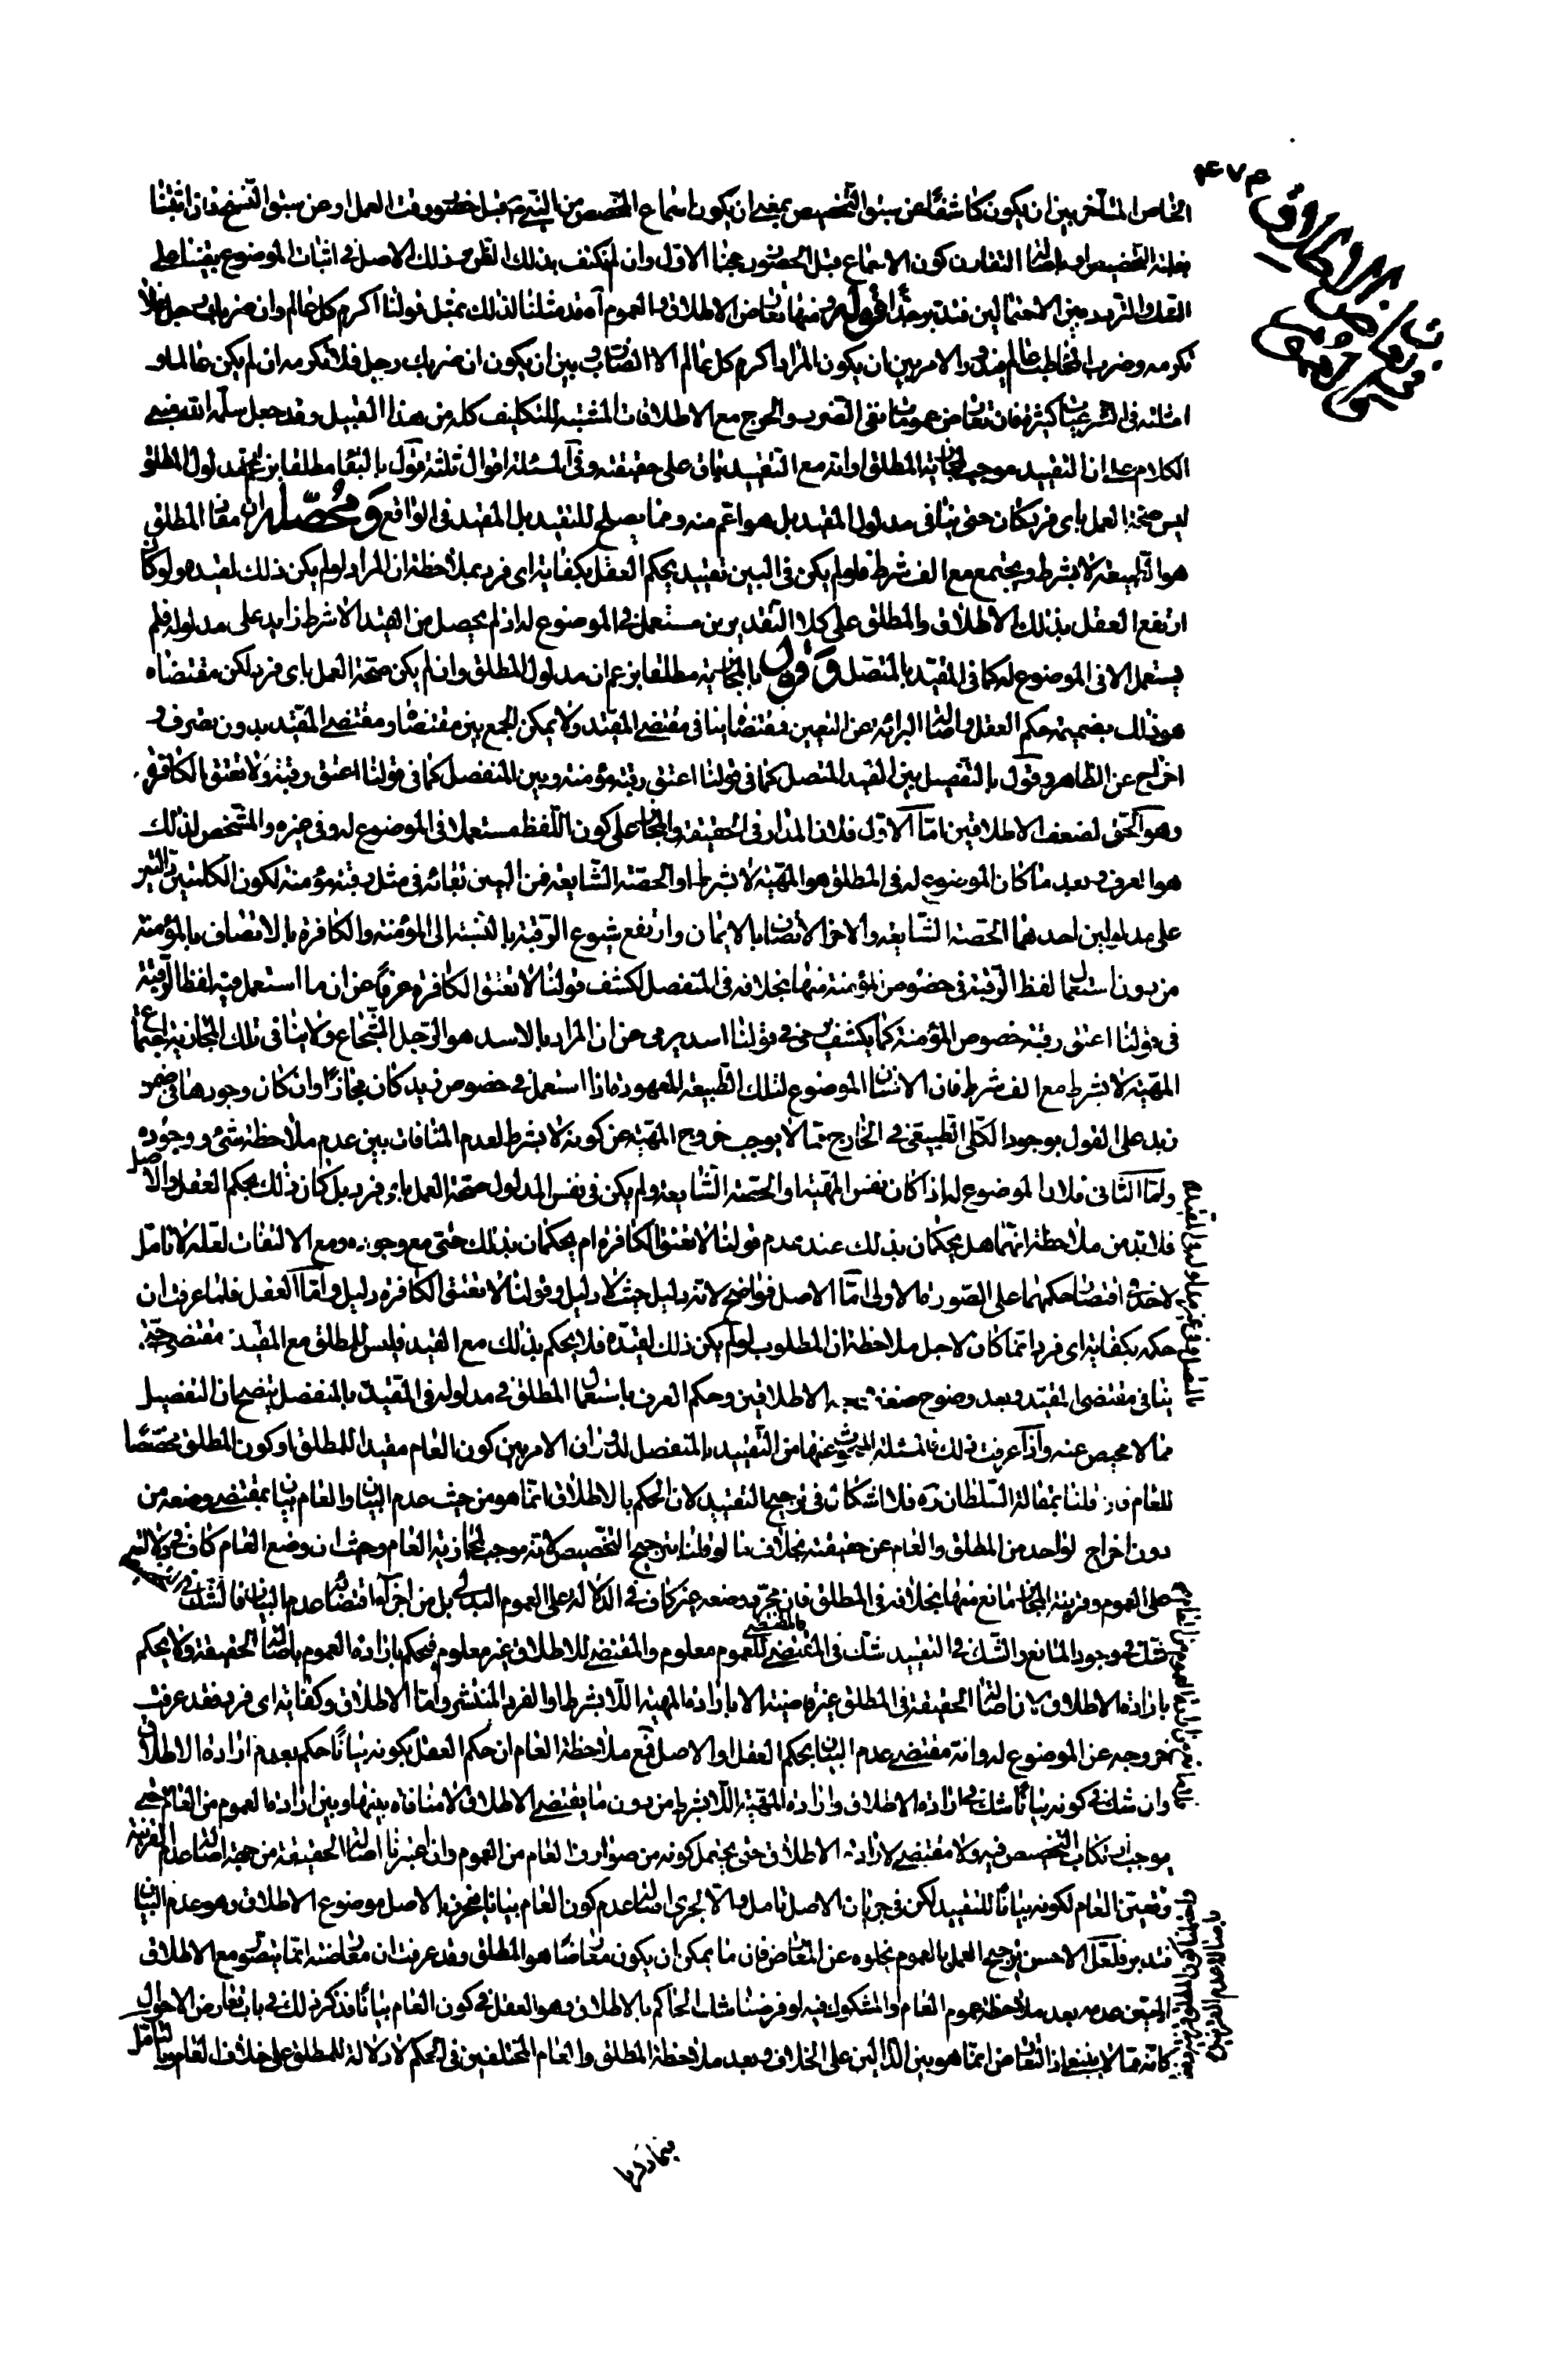 ٤٧٣
تعارض الاطلاق
الخاص المتأخر بين ان يكون كاشفا عن سبق التخصيص بمعنى ان يكون اسماع المخصص من النبي ص قبل حضور وقت العمل او عن سبق النسخ فان اثبتنا
بغلبة التخصيص او باصالة التقارن كون الاسماع قبل الحضور عملنا الاول وان لم نكتف بذلك الظن ولا بذلك الاصل في اثبات الموضوع بقينا على
الشك والترديد بين الاحتمالين فتدبر جدا قوله ومنها تعارض الاطلاق والعموم آه قد مثلنا لذلك بمثل قولنا اكرم كل عالم وان ضربك رجل فلا
تكرمه وضرب المخاطب عالم فيدور الامر بين ان يكون المراد اكرم كل عالم الا الضارب وبين ان يكون ان ضربك رجل فلا تكرمه ان لم يكن عالما و
امثلته في الشرعيات كثيرة فان تعارض عمومات نفى الضرر والحرج مع الاطلاقات المثبتة للتكليف كله من هذا القبيل وقد جعل سلمه الله مبنى
الكلام على ان التقييد موجب لمجازية المطلق او انه مع التقييد باق على حقيقته وفي المسئلة اقوال ثلثة قول بالبقاء مطلقا بزعم ان مدلول المطلق
ليس صحة العمل باى فرد كان حتى ينافى مدلول المقيد بل هو اعم منه ومما يصلح للتقييد بل المقيد في الواقع ومحصله ان مفاد المطلق
هو الطبيعة لا بشرط ويجتمع مع الف شرط فلو لم يكن في البين تقييد يحكم العقل بكفاية اى فرد بملاحظة ان المراد لو لم يكن ذلك لقيده ولو كان
ارتفع العقل بذلك الاطلاق والمطلق على كلا التقديرين مستعمل في الموضوع له اذ لم يحصل من القيد الا شرط زايد على مدلوله فلم
يستعمل الا في الموضوع له كما في المقيد بالمتصل وقول بالمجازية مطلقا بزعم ان مدلول المطلق وان لم يكن صحة العمل باى فرد لكن مقتضاه
هو ذلك بضميمة حكم العقل واصالة البرائة عن التعيين فمقتضاه ينافى مقتضى المقيد ولا يمكن الجمع بين مقتضاه ومقتضى المقيد بدون تصرف و
اخراج عن الظاهر وقول بالتفصيل بين القيد المتصل كما في قولنا اعتق رقبة مؤمنة وبين المنفصل كما في قولنا اعتق رقبة ولا تعتق الكافرة
وهو الحق لضعف الاطلاقين اما الاول فلان المدار في الحقيقة والمجاز على كون اللفظ مستعملا في الموضوع له وفى غيره والمشخص لذلك
هو العرف وبعد ما كان الموضوع له في المطلق هو المهية لا بشرط او الحصة الشايعة فمن البين بقائه في مثل رقبة مؤمنة لكون الكلمتين
على مدلولين احدهما الحصة الشايعة والاخر الاتصاف بالايمان وارتفع شيوع الرقبة بالنسبة الى المؤمنة والكافرة بالاتصاف بالمؤمنة
من دون استعمال لفظ الرقبة في خصوص المؤمنة منها بخلافه في المنفصل لكشف قولنا لا تعتق الكافرة عرفا عن ان ما استعمل فيه لفظ الرقبة
في قولنا اعتق رقبة خصوص المؤمنة كما يكشف يرمى في قولنا اسد يرمى عن ان المراد بالاسد هو الرجل الشجاع ولا ينافى تلك المجازية اجتماع
المهية لا بشرط مع الف شرط فان الانسان الموضوع لتلك الطبيعة المعهودة اذا استعمل في خصوص زيد كان مجازا وان كان وجودها في ضمن
زيد على القول بوجود الكلى الطبيعى في الخارج مما لا يوجب خروج المهية عن كونه لا بشرط لعدم المنافات بين عدم ملاحظة شئ ووجوده
واما الثانى فلان الموضوع له اذا كان نفس المهية او الحصة الشايعة ولم يكن في نفس المدلول صحة العمل باى فرد بل كان ذلك بحكم العقل والاصل
فلا بد من ملاحظة انهما هل يحكمان بذلك عند عدم قولنا لا تعتق الكافرة ام يحكمان بذلك حتى مع وجوده ومع الالتفات لعله لا تامل
لاحد في اقتضاء حكمهما على الصورة الاولى اما الاصل فواضح لانه دليل حيث لا دليل وقولنا لا تعتق الكافرة دليل واما العقل فلما عرفت ان
حكمه بكفاية اى فرد انما كان لاجل ملاحظة ان المطلوب لو لم يكن ذلك لقيده فلا يحكم بذلك مع القيد فليس للمطلق مع المقيد مقتضى حتى
ينافى مقتضى المقيد وبعد وضوح ضعف الاطلاقين وحكم العرف باستعمال المطلق في مدلوله في المقيد بالمنفصل يتضح ان التفصيل
مما لا محيص عنه واذا عرفت ذلك فالمسئلة المبحوث عنها من التقييد بالمنفصل لدوران الامر بين كون العام مقيدا للمطلق او كون المطلق مخصصا
للعام فان قلنا بمقالة السلطان ره فلا اشكال في ترجيح التقييد لان الحكم بالاطلاق انما هو من حيث عدم البيان والعام بيان بمقتضى وضعه من
دون اخراج لواحد من المطلق والعام عن حقيقته بخلاف ما لو قلنا بترجيح التخصيص لانه موجب لمجازية العام وحيث ان وضع العام كاف في دلالته
على العموم وقرينة المجاز مانع منها بخلافه في المطلق فان مجرد وضعه غير كاف في الدلالة على العموم البدلى بل من اجزائه اقتضاء عدم البيان فالشك في التخصيص
شك في وجود المانع والشك في التقييد شك في المقتضى فالمقتضى للعموم معلوم والمقتضى للاطلاق غير معلوم فيحكم بارادة العموم باصالة الحقيقة ولا يحكم
بارادة الاطلاق لان اصالة الحقيقة في المطلق غير قاضية الا بارادة المهية اللا بشرط او الفرد المنتشر واما الاطلاق وكفاية اى فرد فقد عرفت
خروجه عن الموضوع له وانه مقتضى عدم البيان بحكم العقل او الاصل فمع ملاحظة العام ان حكم العقل بكونه بيانا حكم بعدم ارادة الاطلاق
وان شك في كونه بيانا شك في ارادة الاطلاق وارادة المهية اللا بشرط من دون ما يقتضى الاطلاق لا منافاة بينها وبين ارادة العموم من العام حتى
يوجب ارتكاب التخصيص فيه ولا مقتضى لارادة الاطلاق حتى يحتمل كونه من صوارف العام من العموم وان اعتبرنا اصالة الحقيقة من جهة اصالة عدم القرينة
وتعين العام لكونه بيانا للتقييد لكن في جريان الاصل تامل والا لجرى اصالة عدم كون العام بيانا فيحرز بالاصل موضوع الاطلاق وهو عدم البيان
فتدبر فلعل الاحسن ترجيح العمل بالعموم بخلوه عن المعارض فان ما يمكن ان يكون معارضا هو المطلق وقد عرفت ان معارضته انما يتصور مع الاطلاق
المتيقن عدمه بعد ملاحظة عموم العام والمشكوك فيه لو فرضنا شك الحاكم بالاطلاق وهو العقل في كون العام بيانا فذكر ذلك في باب تعارض الاحوال
كانه مما لا ينبغى اذ التعارض انما هو بين الدالين على الخلاف وبعد ملاحظة المطلق والعام المختلفين في الحكم لا دلالة للمطلق على خلاف العام فتامل
فيما ذكرنا